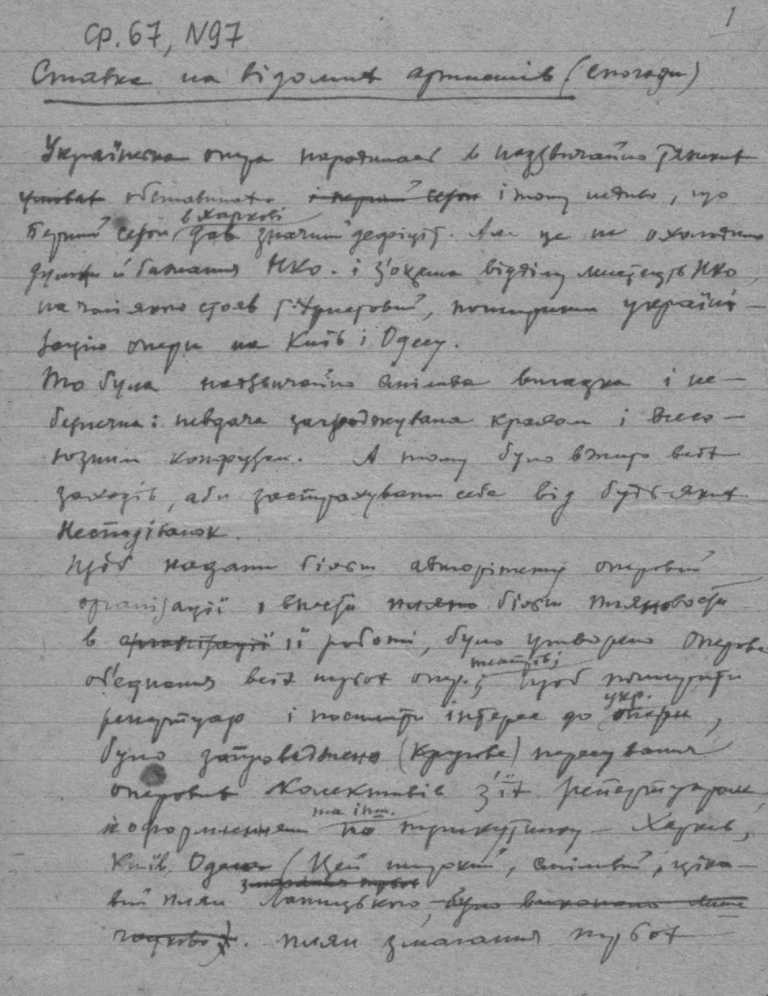 1
Ср. 67, N97
Ставка на відомих артистів (спогади)
Українська опера народилась в надзвичайно тяжких
умовах обставинах і перший сезон і тому недиво, що
в Харкові
перший сезон дав значний дефіцит. Але це не охолодило
й бажання НКО. і з'окрема відділу мистецтв НКО,
на чолі якого стояв Христовий, поширити україні-
зацію опери на Київ і Одесу.
То була надзвичайно смілива вигадка і не-
безпечна: невдача загрожувала крахом і всесо-
юзним конфузом. А тому було вжито всіх
заходів, аби застрахувати себе від будь-яких
несподіванок.
Щоб надати більш авторитету оперовій
організації і внести пляно більш пляновости
в організації її роботі, було утворено Оперове
театрів;
об'єднання всіх трьох опер. ; щоб поширити
укр.
репертуар і посилити інтерес до опери,
було запроваджено (Кругове) пересування
оперових колективів з їх репертуаром
та інш.
й оформленням по трикутнику – Харків,
Київ, Одеса (Цей широкий, сміливий, ціка-
змагання трьох
вий плян Лапицького, було виконано лише
частково). плян змагання трьох